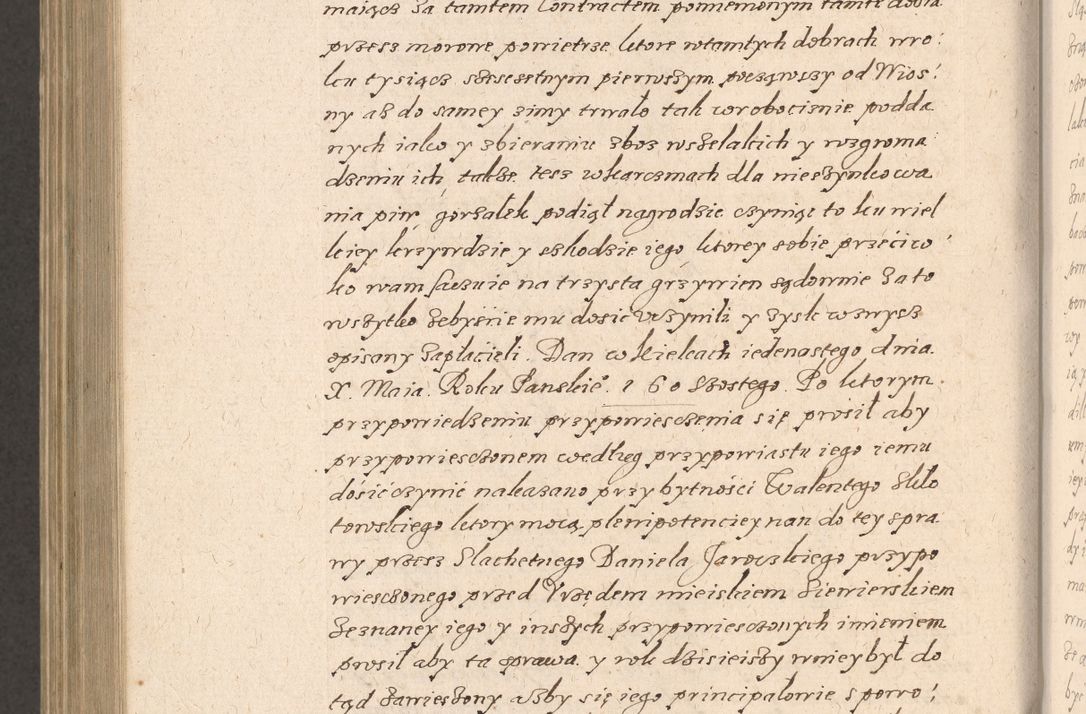 maiącz za tamtem Contractem pomnemonym tamte dobra
przesz morowe powietrze ktore wtamtych dobrach wro:
ku tysiącz szesesetnym pierwszym począwszy od Wios:
ny asz do samey zimy trwało tak w robociznie podda
nych iako y zbieraniu zboz wszelakich y rozgroma
dzeniu ich, także tesz wkarczmach dla nieszynkowa
nia piw, gorzałek podiął nagrodzic czyniąc to ku wiel
kiey krzywdzie y szkodzie iego ktorey sobie przeciw
ko wam słusznie na trzysta grzywien sądownie Za to
wszytko żebyście mu dosić uczynili y zysk wzwysz
opisany zapłacieli. Dan w Kielcach iedenastego dnia
X. Maia. Roku Panskie͡. 1 60 szostego. Po ktorym
przypowiedzeniu przypowiesczenia się prosił aby
przypowiesczonem według przypowiastu iego iemu
dosić czynić nakazano przy bytności Walentego Skło
towskiego ktory mocą plenipotenciey nan do tey spra
wy przesz Slachetnego Daniela Jarockiego przypo
wiesczonego przed Vrzędem mieiskiem Siewierskiem
Zeznaney iego y inszych przypowiesczonych imieniem
prosił aby ta sprawa y rok dzisieiszy wniey był do
tąd zawieszony aszby się iego principałowie z porro: